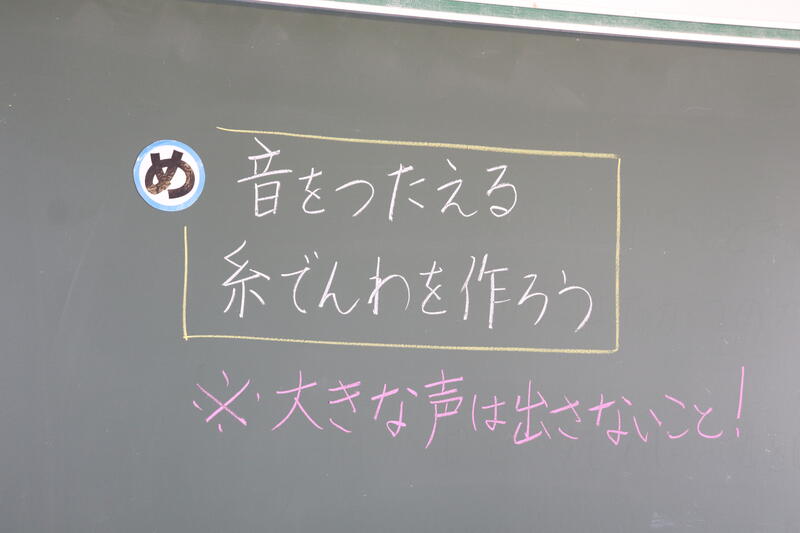 め
音をつたえる
糸でんわを作ろう
※大きな声は出さないこと!